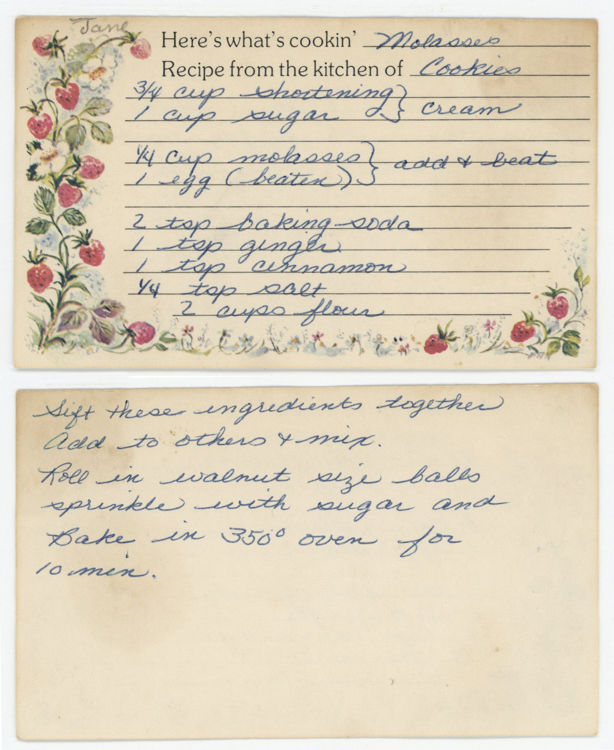 Jane
Here's what's cookin' Molasses
Recipe from the kitchen of Cookies
3/4 cup shortening } cream
1 cup sugar
1/4 cup molasses } add & beat
1 egg (beaten)
2 tsp baking soda
1 tsp ginger
1 tsp cinnamon
1/4 tsp salt
2 cups flour
Sift these ingredients together
Add to others & mix.
Roll in walnut size balls
sprinkle with sugar and
Bake in 350° oven for
10 min.